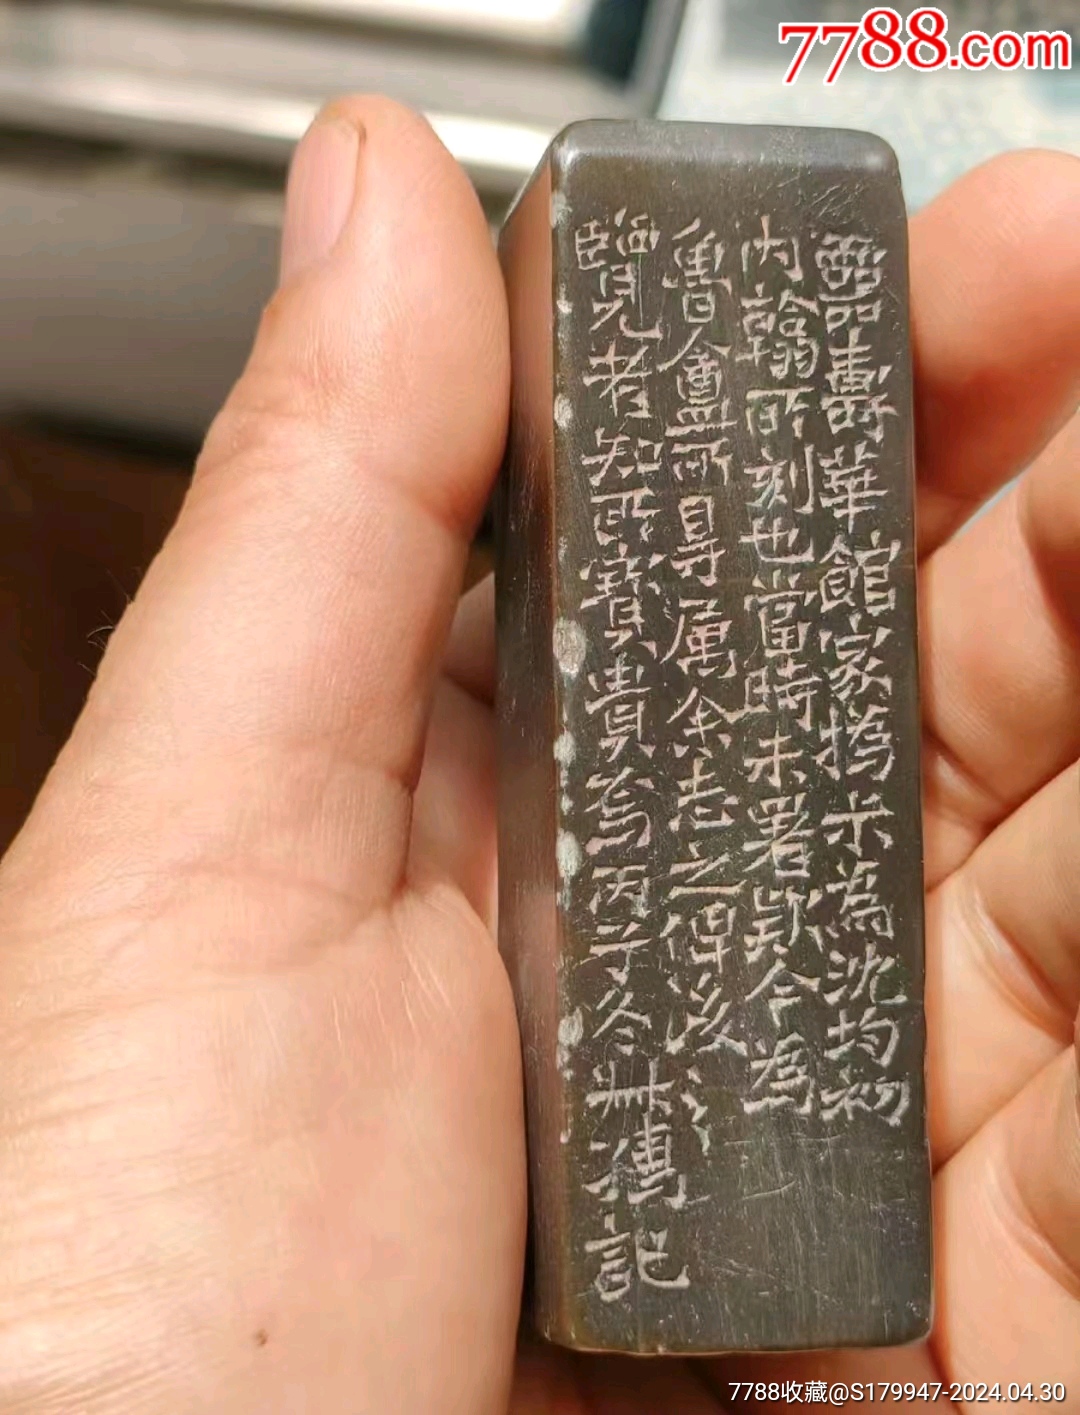 7788.com
靈壽華館家撝尗為沈均初
內翰所刻也當時未署款今為
魯盦所得属余志之俾後之
覽者知所寶貴焉丙子冬叔孺記
7788收藏@S179947-2024.04.30